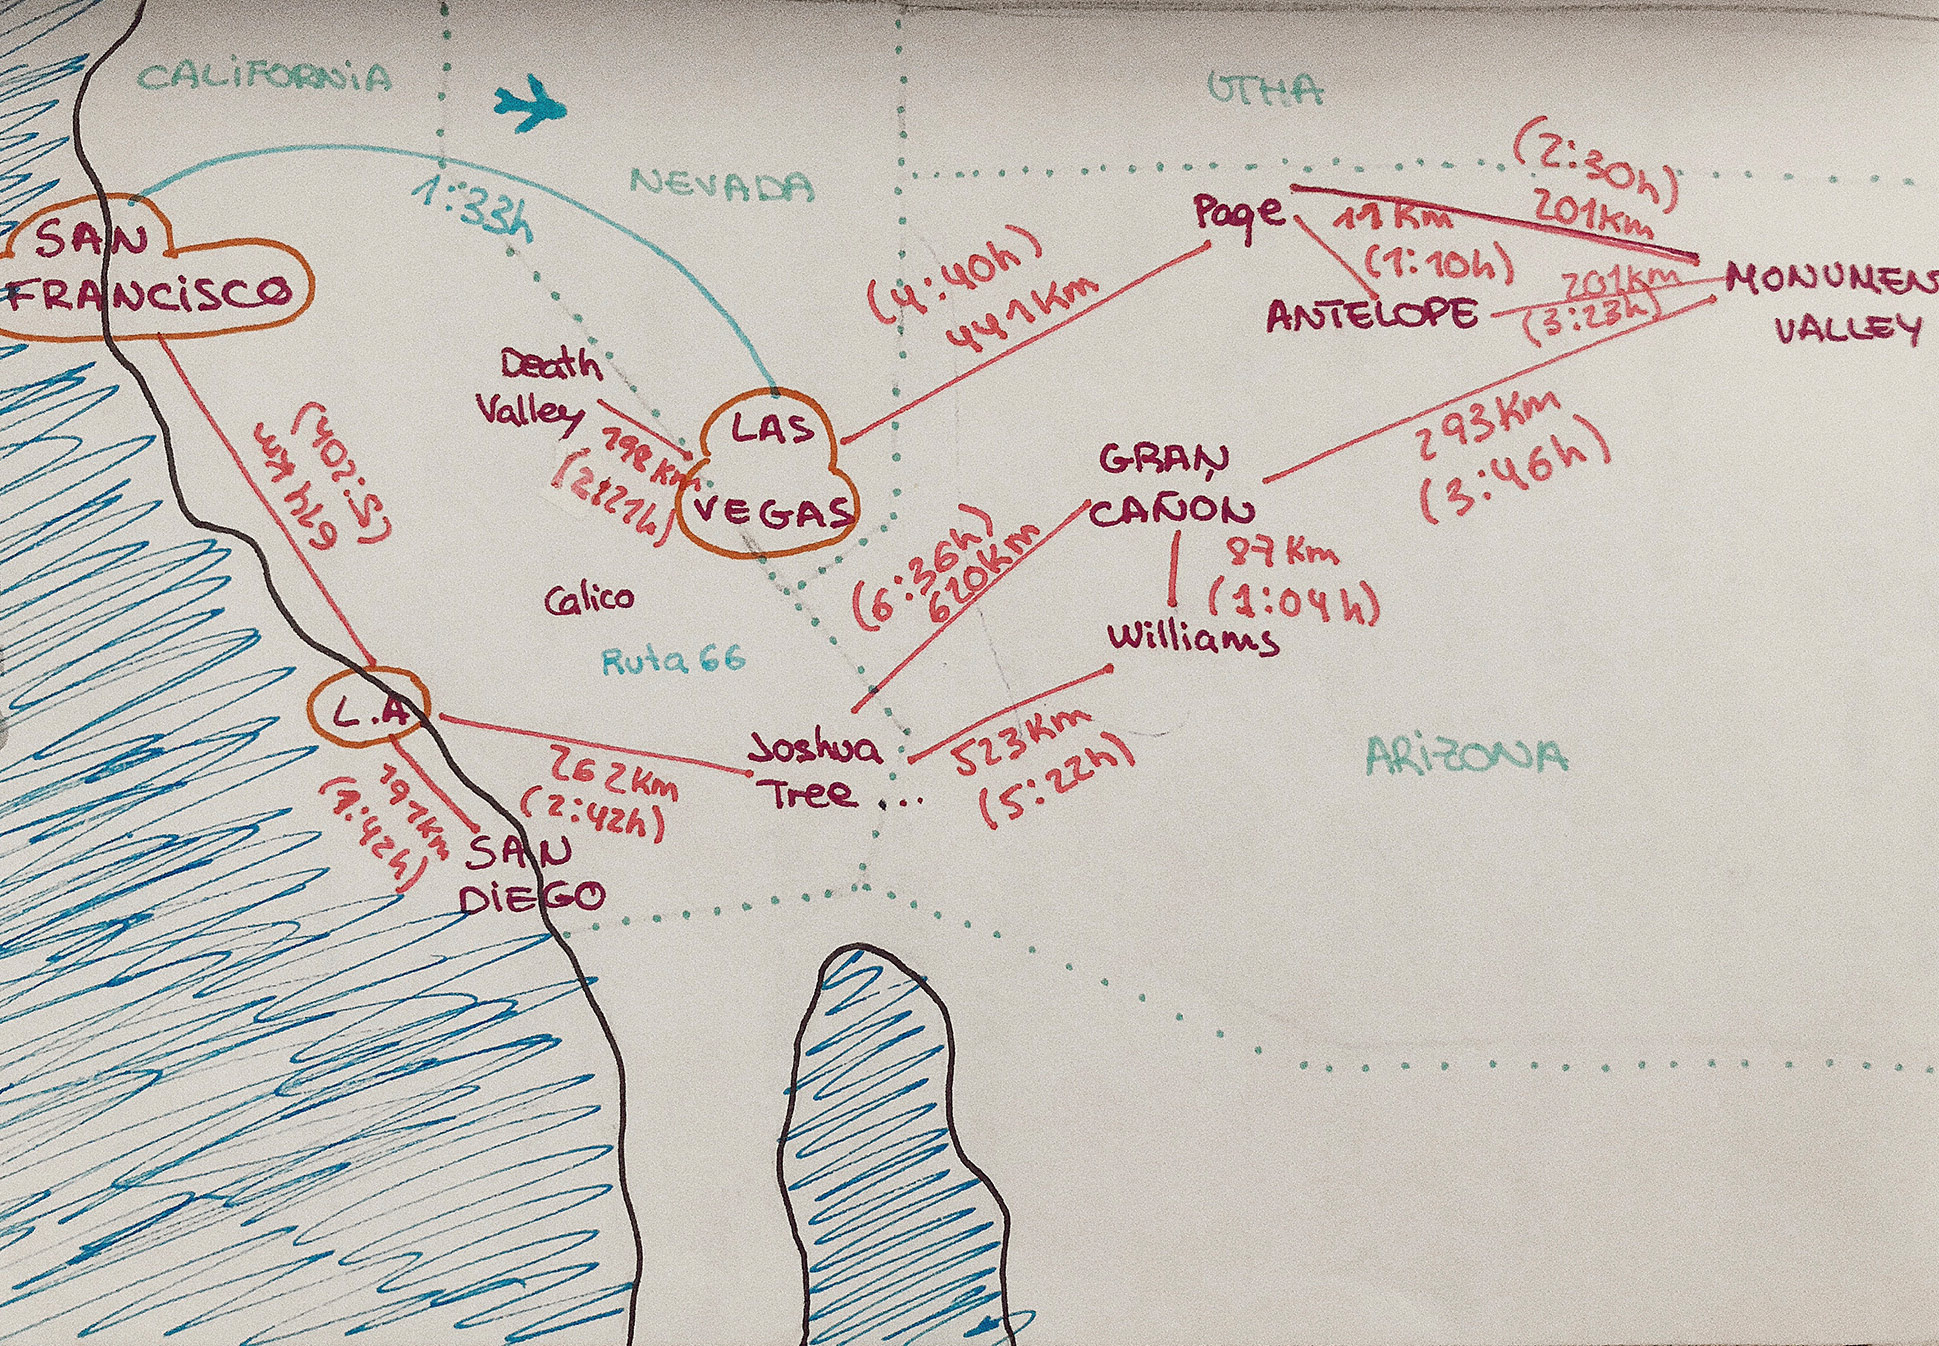 CALIFORNIA
UTHA
NEVADA
1:33h
SAN
FRANCISCO
(2:30h)
201Km
Page
11 Km
(1:10h)
ANTELOPE
201Km
(3:23h)
MONUMEN
VALLEY
(4:40h)
441Km
Death
Valley
(2:21h)
LAS
VEGAS
GRAN
CAÑON
293Km
(3:46h)
(5:20h)
(6:36h)
620Km
87 Km
(1:04h)
Williams
Calico
Ruta 66
L.A
262Km
(2:42h)
Joshua
Tree ...
523Km
(5:22h)
ARIZONA
191Km
(1:42h)
SAN
DIEGO